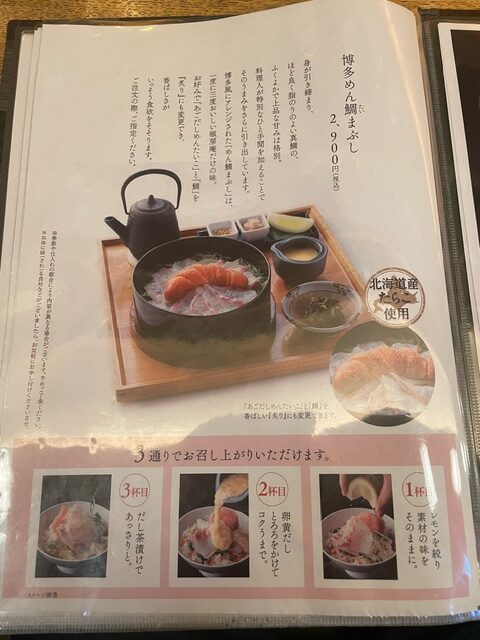 博多めん鯛まぶし
2,900円(税込)
身が引き締まり、
ほど良く脂のりのよい真鯛の、
ふくよかで上品な甘みは格別。
料理人が特別なひと手間を加えることで
そのうまみをさらに引き出しています。
博多風にアレンジされた「めん鯛まぶし」は、
一度に三度おいしい椒房庵だけの味。
お好みで「あごだしめんたいこ」と「鯛」を
『炙り』にも変更でき、
香ばしさが
いっそう食欲をそそります。
ご注文の際、ご指定ください。
※季節や仕入れの都合により内容が異なる場合がございます。予めご了承ください。
※お体に障つさわる食材などがございましたら、お気軽にお申し付けくださいませ。
北海道産
たらこ
使用
「あごだしめんたいこ」と「鯛」を
香ばしい『炙り』にも変更できます。
3通りでお召し上がりいただけます。
1杯目
レモンを絞り
素材の味を
そのままに。
2杯目
卵黄だし
とろろをかけて
コクうまで。
3杯目
だし茶漬けで
あっさりと。
イメージ画像